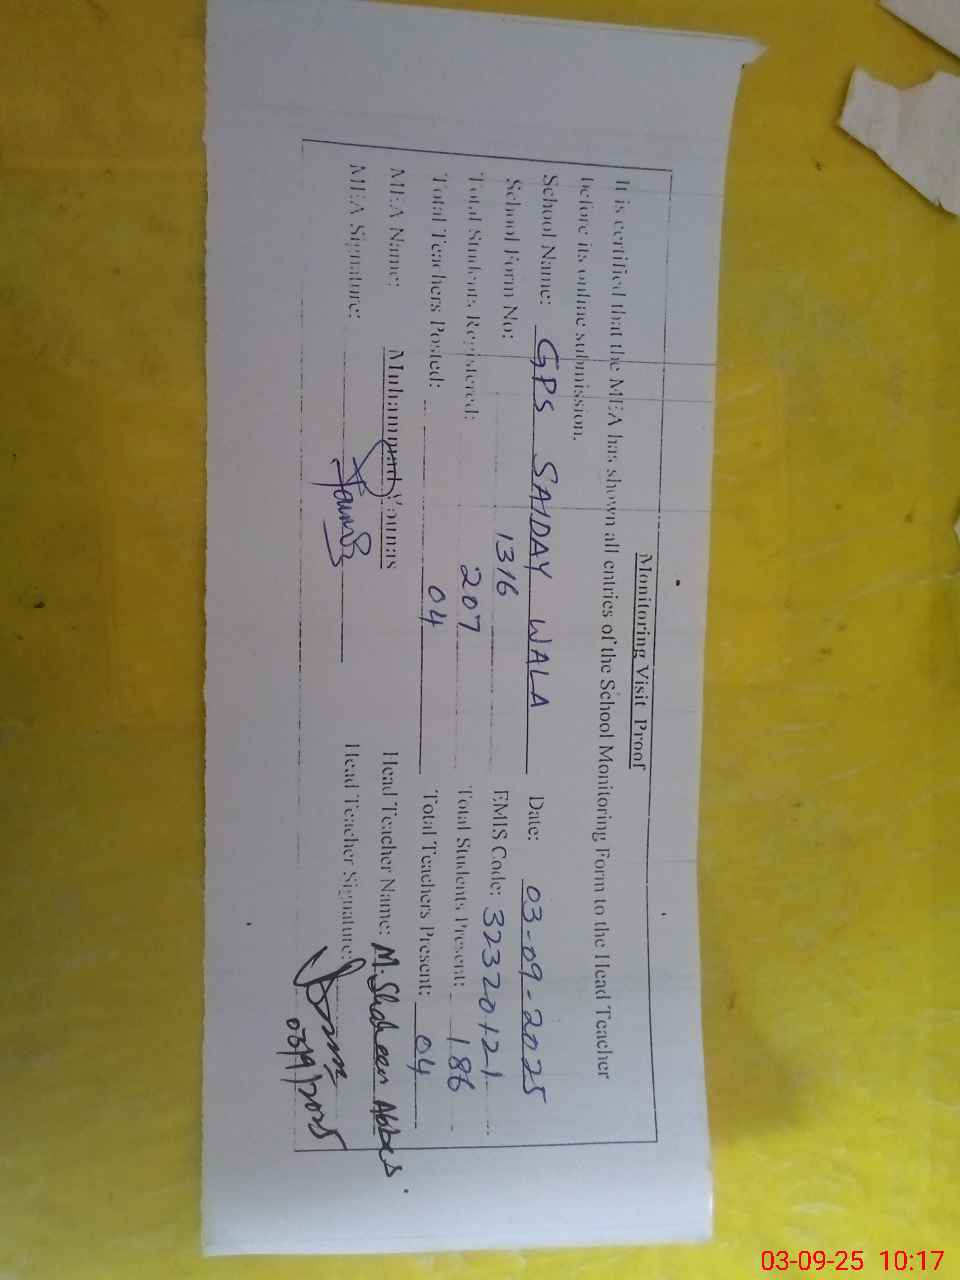 Monitoring Visit Proof
It is certified that the MEA has shown all entries of the School Monitoring Form to the Head Teacher
before its online submission.
School Name: GPS SAIDAY WALA Date: 03-09-2025
School Form No: 1316 EMIS Code: 32320121
Total Students Registered: 207 Total Students Present: 186
Total Teachers Posted: 04 Total Teachers Present: 04
MEA Name: Muhammad Younas Head Teacher Name: M. Shaheen Abbas
MEA Signature: Head Teacher Signature:
03/9/2025
03-09-25 10:17